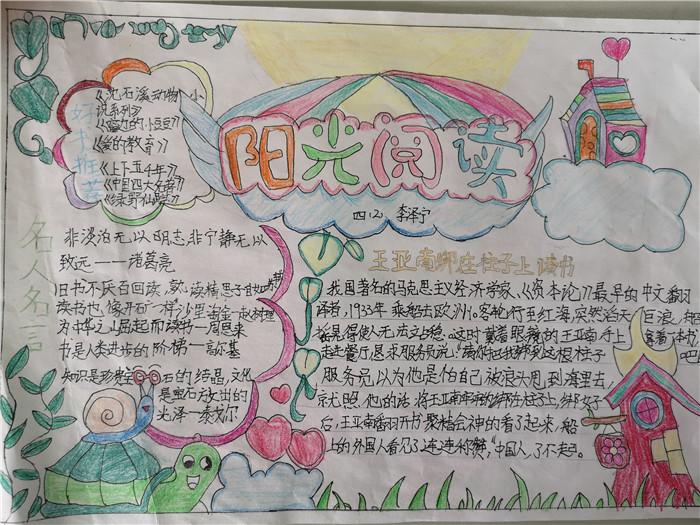 阳光阅读
四(2) 李泽宁
好书推荐
《沈石溪动物小
说系列》
《窗边的小豆豆》
《爱的教育》
《上下五千年》
《中国四大名著》
《绿野仙踪》
名人名言
非淡泊无以明志,非宁静无以
致远——诸葛亮
旧书不厌百回读,熟读精思子自知
读书也像开石一样,沙里淘金—赵树理
为中华之崛起而读书—周恩来
书是人类进步的阶梯—高尔基
知识是珍贵宝石的结晶,文化
是宝石放出的
光泽—泰戈尔
王亚南绑在柱子上读书
我国著名的马克思主义经济学家、《资本论》最早的中文翻译
者,1933年乘船去欧洲。客轮行至红海,突然滔天巨浪,
摇晃得使人无法站稳。这时戴着眼镜的王亚南手上拿着一本书,
走进餐厅恳求服务员说:请你把我绑到这根柱子
吧
服务员以为他是怕自己被浪头甩到海里去,
就照他的话将王亚南牢牢的绑在柱子上,绑好
后,王亚南翻开书聚精会神的看了起来,船
上的外国人看见了连连称赞,"中国人,了不起"。